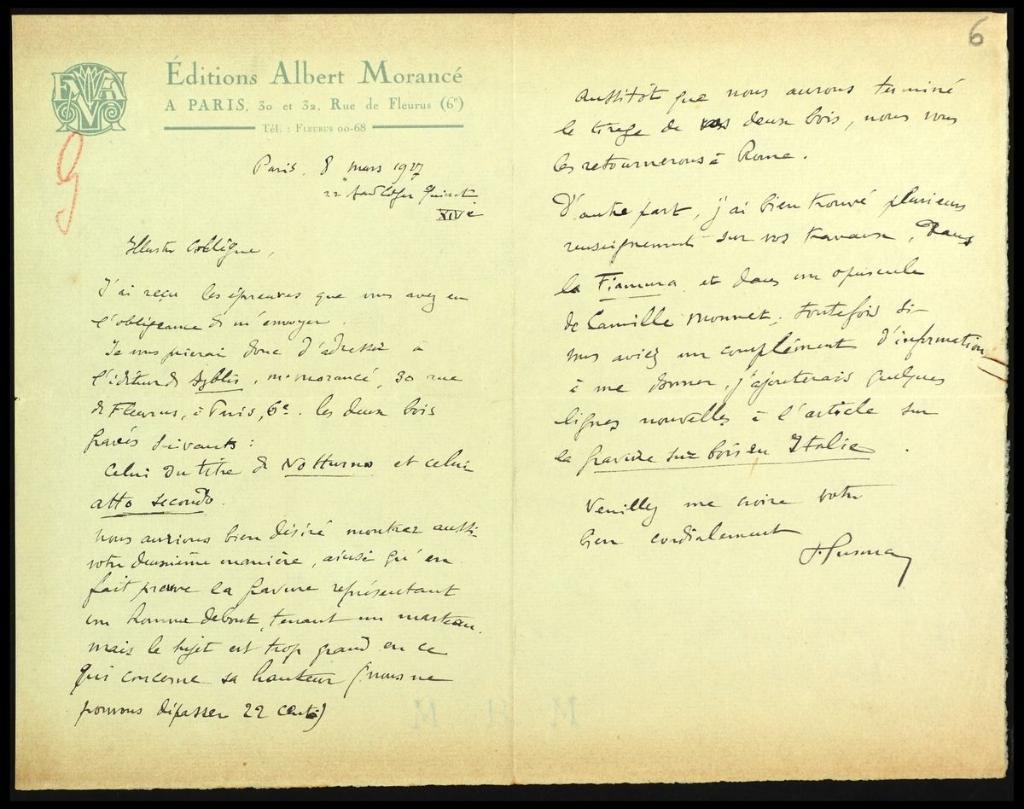 6
Éditions Albert Morancé
A PARIS, 30 et 32, Rue de Fleurus (6e)
Tél. : FLEURUS 00-68
Paris, 8 mars 1927
22 Quinet
XIVe
Illustre Collègue,
J'ai reçu les épreuves que vous avez eu
l'obligeance de m'envoyer.
Je vous prierai donc d'adresser à
l'éditeur de Byblis, Mr Morancé, 30 rue
de Fleurus, à Paris, 6e. les deux bois
gravés suivants :
Celui du titre de Notturno et celui
atto secondo.
Nous aurions bien désiré montrer aussi
votre deuxième manière, ainsi qu'en
fait preuve la gravure représentant
un homme debout, tenant un marteau.
mais le sujet est trop grand en ce
qui concerne sa hauteur (nous ne
pouvons dépasser 22 cent.)
Aussitôt que nous aurons terminé
le tirage de vos deux bois, nous vous
les retournerons à Rome.
D'autre part, j'ai bien trouvé plusieurs
renseignements sur vos travaux, dans
la Fiamma et dans un opuscule
de Camille Monnet ; toutefois si
vous aviez un complément d'information
à me donner, j'ajouterais quelques
lignes nouvelles à l'article sur
la gravure sur bois en Italie.
Veuillez me croire votre
bien cordialement